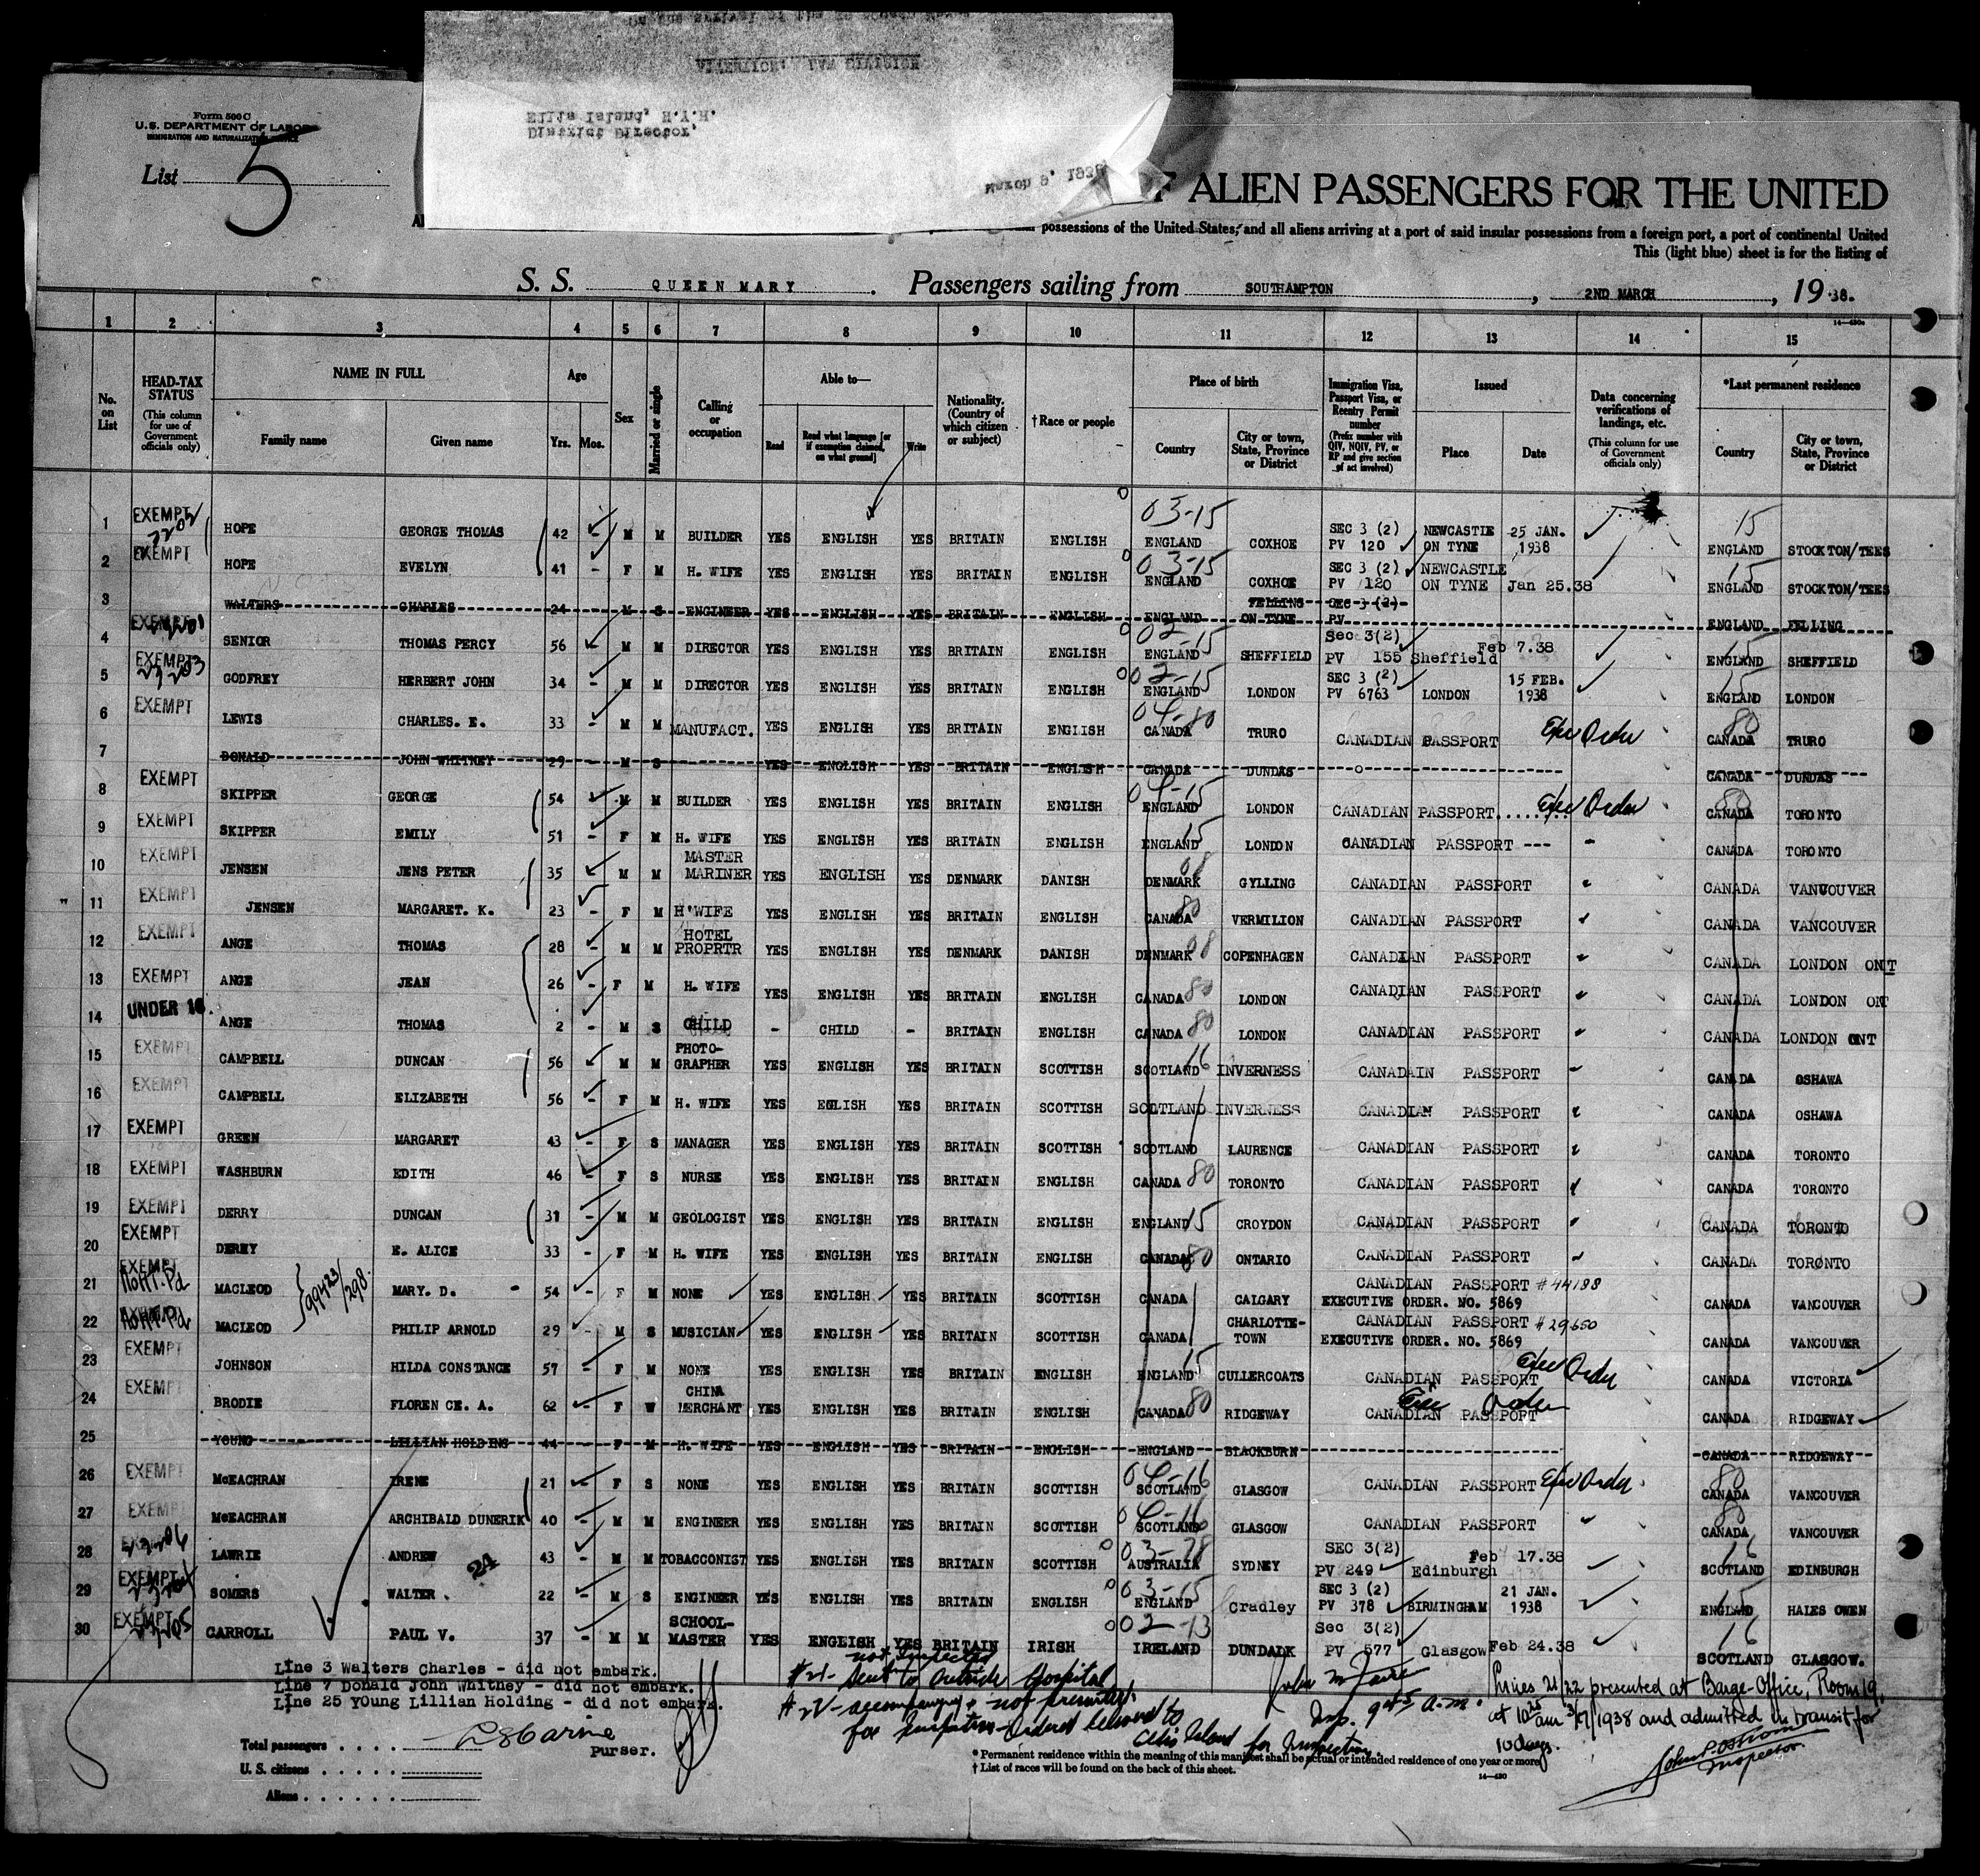 Form 500 C
U.S. DEPARTMENT OF LABOR
IMMIGRATION AND NATURALIZATION SERVICE
List 5
District Director,
Ellis Island, N.Y.H.
F ALIEN PASSENGERS FOR THE UNITED
possessions of the United States, and all aliens arriving at a port of said insular possessions from a foreign port, a port of continental United
This (light blue) sheet is for the listing of
S. S. QUEEN MARY . Passengers sailing from SOUTHAMPTON , 2ND MARCH , 19 38.
1 2 3 4 5 6 7 8 9 10 11 12 13 14 15
No. on List
HEAD-TAX STATUS (This column for use of Government officials only)
NAME IN FULL Family name Given name
Age Yrs. Mos.
Sex
Married or single
Calling or occupation
Able to— Read Read what language [or if exemption claimed, on what ground] Write
Nationality. (Country of which citizen or subject)
†Race or people
Place of birth Country City or town, State, Province or District
Immigration Visa, Passport Visa, or Reentry Permit number (Prefix number with QIV, NQIV, PV, or RP and give section of act involved)
Issued Place Date
Data concerning verifications of landings, etc. (This column for use of Government officials only)
*Last permanent residence Country City or town, State, Province or District
1 EXEMPT HOPE GEORGE THOMAS 42 - M M BUILDER YES ENGLISH YES BRITAIN ENGLISH 03-15 ENGLAND COXHOE SEC 3 (2) PV 120 NEWCASTLE ON TYNE 25 JAN. 1938 15 ENGLAND STOCKTON/TEES
2 EXEMPT HOPE EVELYN 41 - F M H. WIFE YES ENGLISH YES BRITAIN ENGLISH 03-15 ENGLAND COXHOE SEC 3 (2) PV 120 NEWCASTLE ON TYNE Jan 25.38 15 ENGLAND STOCKTON/TEES
3 WALTERS CHARLES 24 - M S ENGINEER YES ENGLISH YES BRITAIN ENGLISH ENGLAND FELLING ON TYNE SEC 3 (2) PV ENGLAND FELLING
4 EXEMPT SENIOR THOMAS PERCY 56 M M DIRECTOR YES ENGLISH YES BRITAIN ENGLISH 02-15 ENGLAND SHEFFIELD Sec 3(2) PV 155 Sheffield Feb 7.38 15 ENGLAND SHEFFIELD
5 EXEMPT GODFREY HERBERT JOHN 34 - M M DIRECTOR YES ENGLISH YES BRITAIN ENGLISH 02-15 ENGLAND LONDON SEC 3 (2) PV 6763 LONDON 15 FEB. 1938 15 ENGLAND LONDON
6 EXEMPT LEWIS CHARLES. E. 33 - M M MANUFACT. YES ENGLISH YES BRITAIN ENGLISH 04-80 CANADA TRURO CANADIAN PASSPORT Exec Order 80 CANADA TRURO
7 DONALD JOHN WHITNEY 29 M S YES ENGLISH YES BRITAIN ENGLISH CANADA DUNDAS CANADA DUNDAS
8 EXEMPT SKIPPER GEORGE 54 - M M BUILDER YES ENGLISH YES BRITAIN ENGLISH 04-15 ENGLAND LONDON CANADIAN PASSPORT....... Exec Order 80 CANADA TORONTO
9 EXEMPT SKIPPER EMILY 51 - F M H. WIFE YES ENGLISH YES BRITAIN ENGLISH 15 ENGLAND LONDON CANADIAN PASSPORT --- CANADA TORONTO
10 EXEMPT JENSEN JENS PETER 35 M M MASTER MARINER YES ENGLISH YES DENMARK DANISH 08 DENMARK GYLLING CANADIAN PASSPORT CANADA VANCOUVER
" 11 EXEMPT JENSEN MARGARET. K. 23 - F M H'WIFE YES ENGLISH YES BRITAIN ENGLISH 80 CANADA VERMILION CANADIAN PASSPORT CANADA VANCOUVER
12 EXEMPT ANGE THOMAS 28 - M M HOTEL PROPRTR YES ENGLISH YES DENMARK DANISH DENMARK 08 COPENHAGEN CANADIAN PASSPORT CANADA LONDON ONT
13 EXEMPT ANGE JEAN 26 - F M H. WIFE YES ENGLISH YES BRITAIN ENGLISH CANADA 80 LONDON CANADIAN PASSPORT CANADA LONDON ONT
14 UNDER 16. ANGE THOMAS 2 - M S CHILD - CHILD - BRITAIN ENGLISH CANADA 80 LONDON CANADIAN PASSPORT CANADA LONDON ONT
15 EXEMPT CAMPBELL DUNCAN 56 - M M PHOTO-GRAPHER YES ENGLISH YES BRITAIN SCOTTISH SCOTLAND 16 INVERNESS CANADAIN PASSPORT CANADA OSHAWA
16 EXEMPT CAMPBELL ELIZABETH 56 - F M H. WIFE YES EGLISH YES BRITAIN SCOTTISH SCOTLAND INVERNESS CANADIAN PASSPORT CANADA OSHAWA
17 EXEMPT GREEN MARGARET 43 - F S MANAGER YES ENGLISH YES BRITAIN SCOTTISH SCOTLAND LAURENCE CANADIAN PASSPORT CANADA TORONTO
18 EXEMPT WASHBURN EDITH 46 - F S NURSE YES ENGLISH YES BRITAIN ENGLISH CANADA 80 TORONTO CANADIAN PASSPORT CANADA TORONTO
19 EXEMPT DERRY DUNCAN 31 - M M GEOLOGIST YES ENGLISH YES BRITAIN ENGLISH ENGLAND 15 CROYDON CANADIAN PASSPORT CANADA TORONTO
20 EXEMPT DERRY E. ALICE 33 - F M H. WIFE YES ENGLISH YES BRITAIN ENGLISH CANADA 80 ONTARIO CANADIAN PASSPORT CANADA TORONTO
21 EXEMPT MACLEOD 99423/298. MARY. D. 54 - F M NONE YES ENGLISH YES BRITAIN SCOTTISH CANADA CALGARY CANADIAN PASSPORT # 44188 EXECUTIVE ORDER. NO. 5869 CANADA VANCOUVER
22 EXEMPT MACLEOD PHILIP ARNOLD 29 - M S MUSICIAN YES ENGLISH YES BRITAIN SCOTTISH CANADA CHARLOTTE-TOWN CANADIAN PASSPORT # 29650 EXECUTIVE ORDER. NO. 5869 CANADA VANCOUVER
23 EXEMPT JOHNSON HILDA CONSTANCE 57 - F M NONE YES ENGLISH YES BRITAIN ENGLISH 15 ENGLAND CULLERCOATS CANADIAN PASSPORT Exec Order CANADA VICTORIA
24 EXEMPT BRODIE FLOREN CE. A. 62 - F W CHINA MERCHANT YES ENGLISH YES BRITAIN ENGLISH CANADA 80 RIDGEWAY CANADIAN PASSPORT Exec Order CANADA RIDGEWAY
25 YOUNG LILLIAN HOLDING 44 - F M H. WIFE YES ENGLISH YES BRITAIN ENGLISH ENGLAND BLACKBURN CANADA RIDGEWAY
26 EXEMPT McEACHRAN IRENE 21 - F S NONE YES ENGLISH YES BRITAIN SCOTTISH 04-16 SCOTLAND GLASGOW CANADIAN PASSPORT Exec Order 80 CANADA VANCOUVER
27 EXEMPT McEACHRAN ARCHIBALD DUNERIK 40 - M M ENGINEER YES ENGLISH YES BRITAIN SCOTTISH 04-16 SCOTLAND GLASGOW CANADIAN PASSPORT 80 CANADA VANCOUVER
28 LAWRIE ANDREW 24 43 - M M TOBACCONIST YES ENGLISH YES BRITAIN SCOTTISH 03-78 AUSTRALIA SYDNEY SEC 3(2) PV 249 Edinburgh Feb 17.38 16 SCOTLAND EDINBURGH
29 EXEMPT SOMERS WALTER . 22 - M S ENGINEER YES ENGLISH YES BRITAIN ENGLISH 03-15 ENGLAND Cradley SEC 3 (2) PV 378 BIRMINGHAM 21 JAN. 1938 15 ENGLAND HALES OWEN
30 EXEMPT CARROLL PAUL V. 37 - M M SCHOOL-MASTER YES ENGLISH YES BRITAIN IRISH 02-13 IRELAND DUNDALK Sec 3(2) PV 577 Glasgow Feb 24.38 16 SCOTLAND GLASGOW.
Line 3 Walters Charles - did not embark.
Line 7 Donald John Whitney - did not embark.
Line 25 YOung Lillian Holding - did not embark.
Purser.
not inspected
#21- Sent to Outside Hospital
#22- accompanying + not presented
for inspection - Ordered removed to
Ellis Island for Inspection.
Insp. 9:45 a.m.
Lines 21/22 presented at Barge-Office, Room 19,
at 10:25 am 3/17/1938 and admitted in transit for
10 days.
Inspector.
Total passengers . . . .
U. S. citizens . . . . .
Aliens . . . . . .
* Permanent residence within the meaning of this manifest shall be actual or intended residence of one year or more.
† List of races will be found on the back of this sheet.
14—430